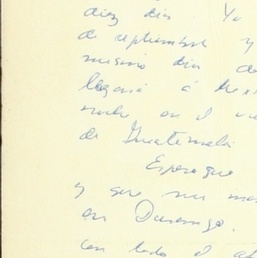 diez dias Yo
de septiembre y
mismo dia de
llegaré á
noche en el
de Guatemala
Espero que
y que
en Durango.
con todo el